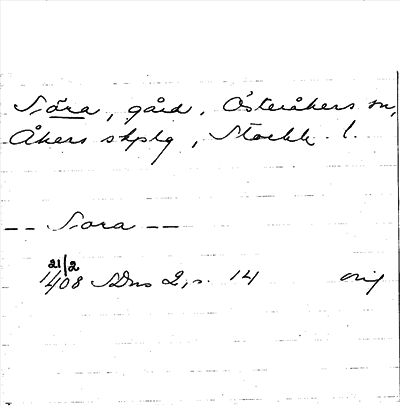 Nora, gård, Österåkers sn,
Åkers skplg, Stockh. l.
-- Nora --
21/2
1408 SDns 2, s. 14 orig